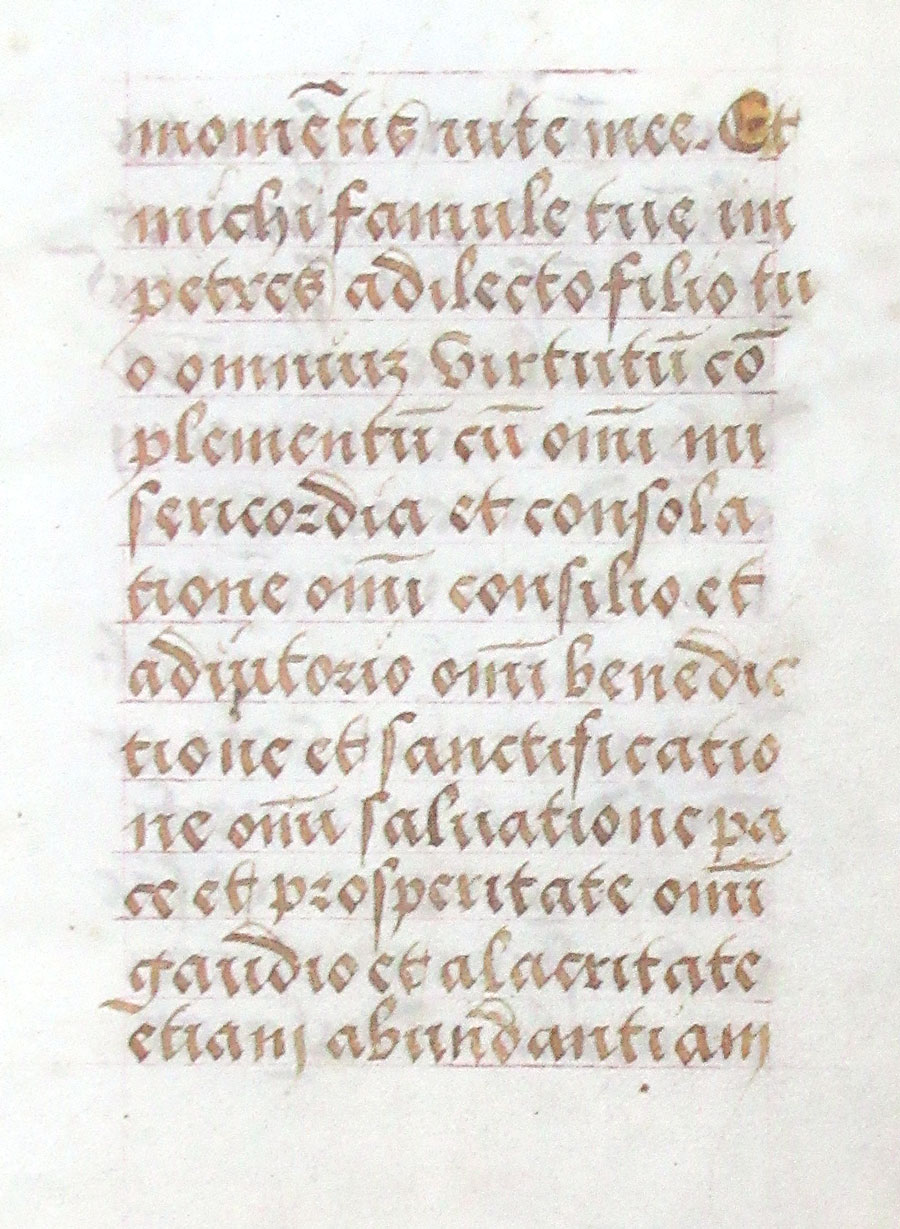 momẽtis uite mee. Et
michi famule tue im
petres a dilecto filio tu
o omniuz virtutū cō
plementū cū om̄i mi
sericordia et consola
tione om̄i consilio et
adiutorio om̄i benedic
tione et sanctificatio
ne om̄i saluatione pa
ce et prosperitate om̄i
gaudio et alacritate
etiam abundantiam